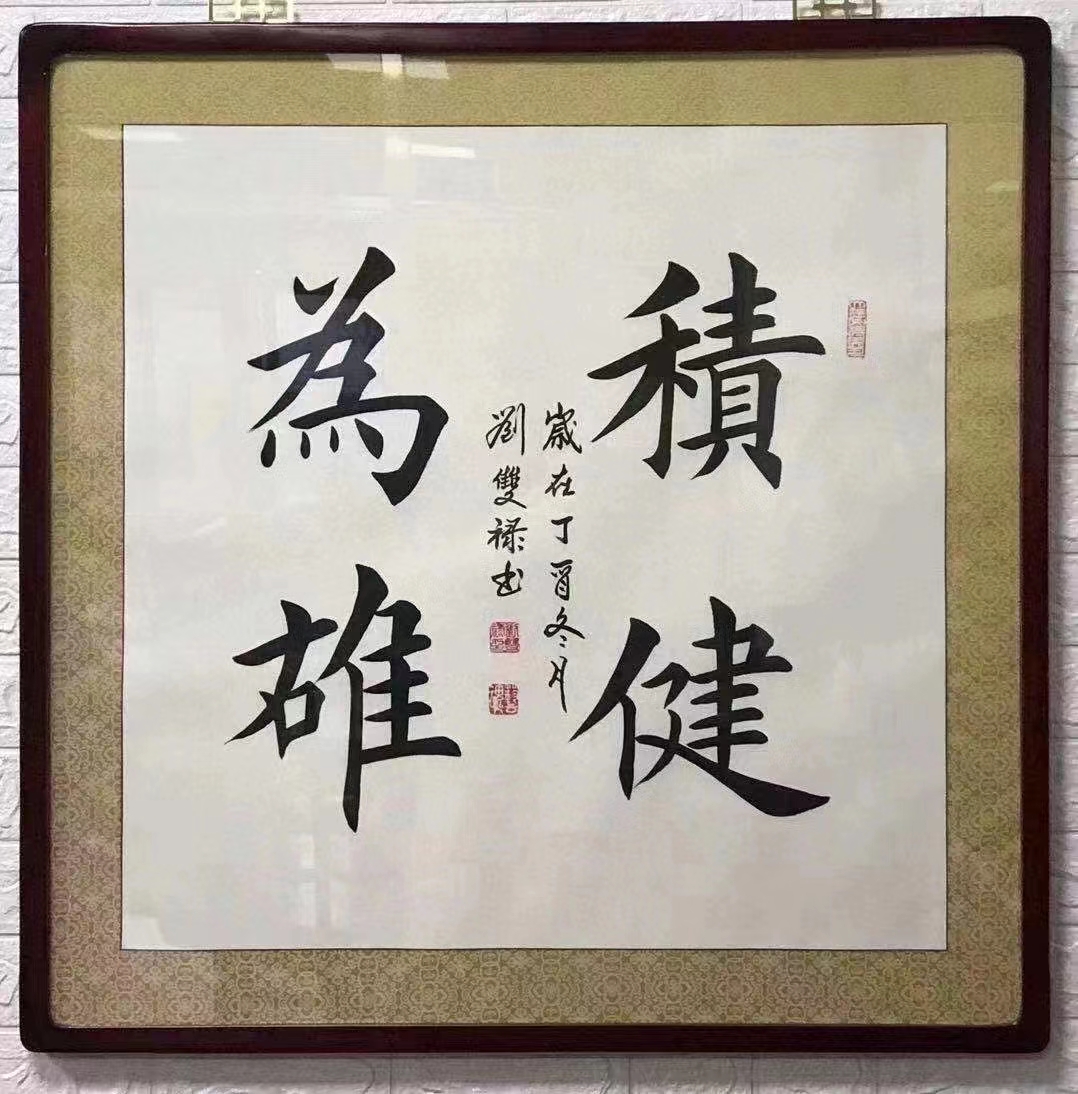 積健
為雄
歲在丁酉冬月
劉雙祿书